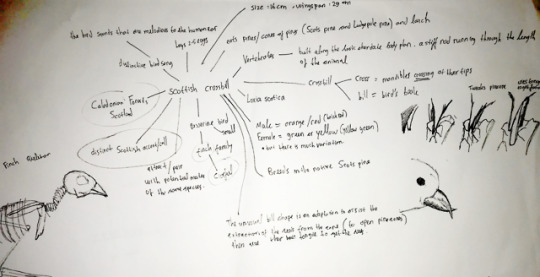 size: 16cm - wingspan: 29cm
The bird sounds that are melodious to the human ear
Lays 2-5 eggs
distinctive bird song
eats pines/cones of pines (Scots pine and Lodgepole pine) and larch
Vertebrates
built along the basic chordate body plan. a stiff rod running through the length
of the animal
Scottish crossbill
Caledonian Forests,
Scotland
Loxia scotica
Crossbill
Cross = mandibles crossing at their tips
bill = bird's beak
Tweezers
distinct Scottish accent/call
attract / pair
with potential mates
of the same species.
Passerine bird
small
finch family
Male = orange/red
Female = green or yellow (yellow green)
* but there is much variation.
Breeds in the native Scots pine
Finch skeleton
The unusual bill shape is an adaptation to assist the
extraction of the seeds from the cones (to open pinecones)
then use their tongue to get the seed.